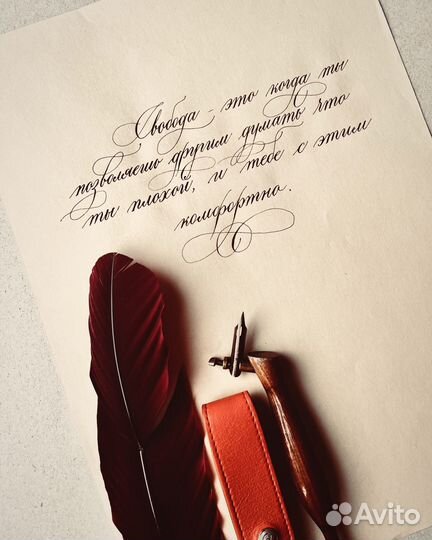 Свобода - это когда ты
позволяешь другим думать что
ты плохой, и тебе с этим
комфортно.
Avito